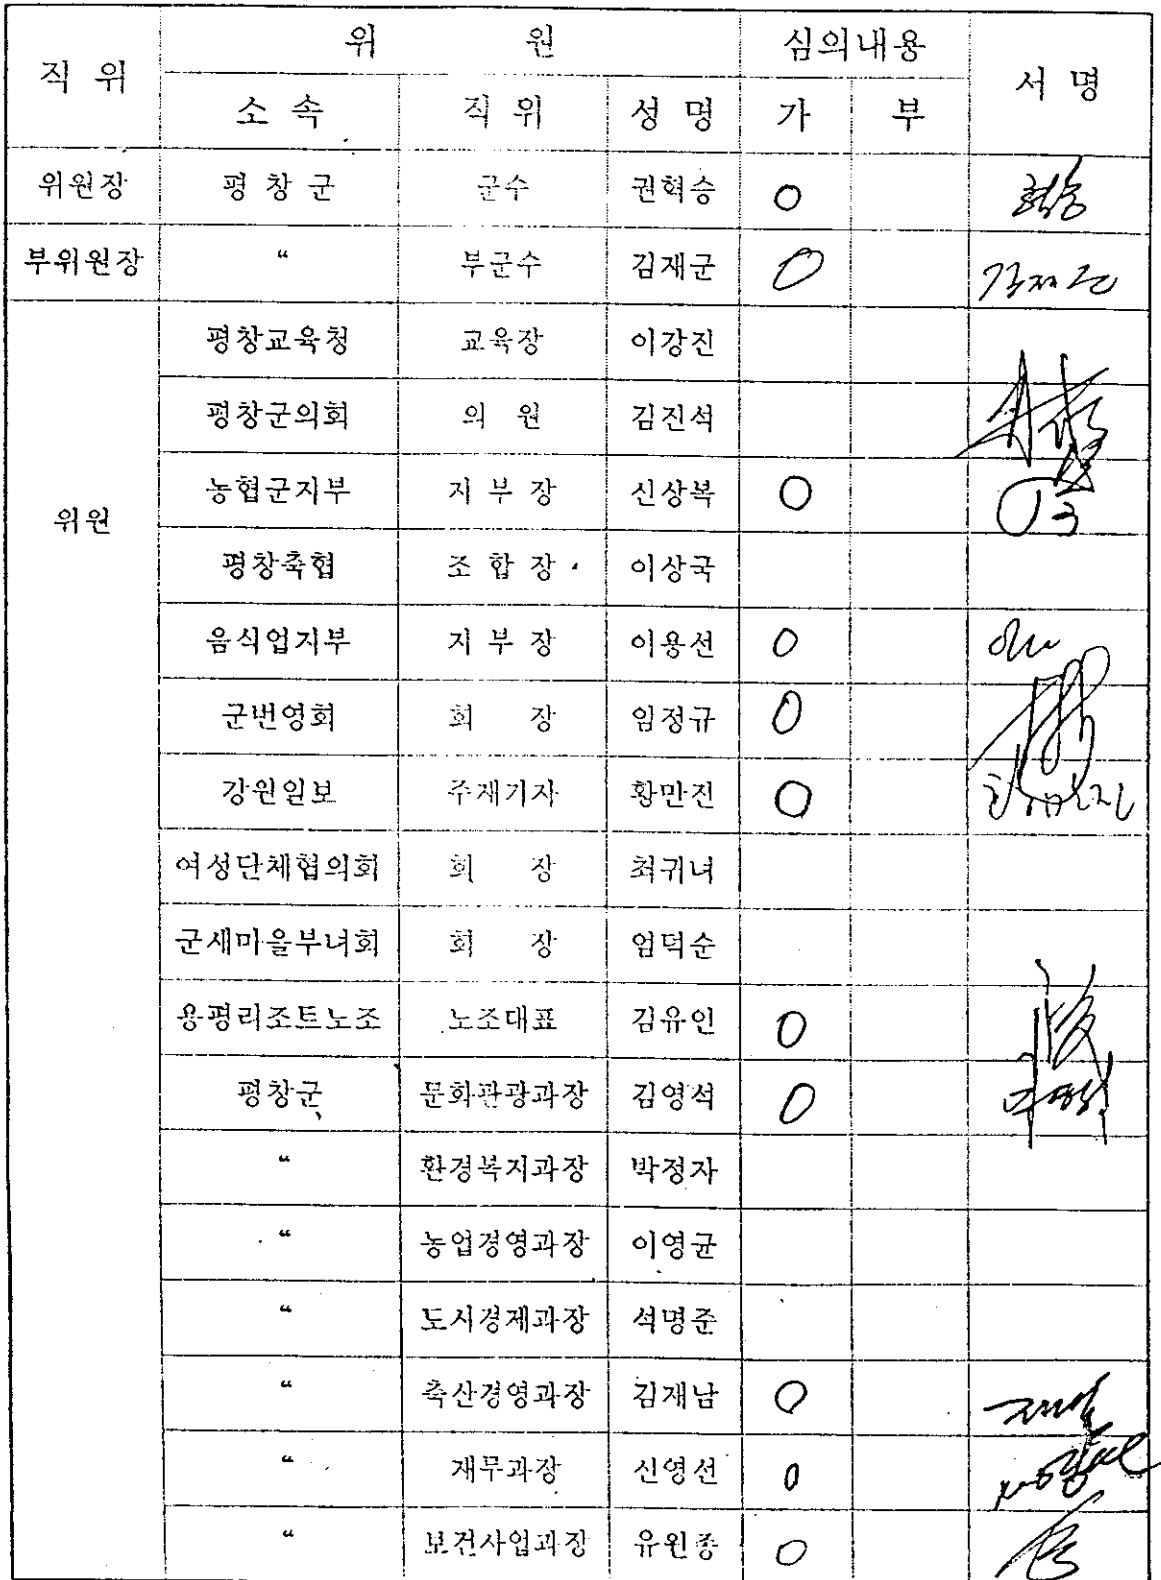 직 위 위 원 심의내용 서 명
소 속 직 위 성 명 가 부
위원장 평 창 군 군수 권혁승 O 혁승
부위원장 “ 부군수 김재군 O 김재군
위원
평창교육청 교육장 이강진
평창군의회 의 원 김진석
농협군지부 지 부 장 신상복 O
평창축협 조 합 장 이상국
음식업지부 지 부 장 이용선 O
군번영회 회 장 임정규 O
강원일보 주재기자 황만진 O
여성단체협의회 회 장 최귀녀
군새마을부녀회 회 장 엄덕순
용평리조트노조 노조대표 김유인 O
평창군 문화관광과장 김영석 O
“ 환경복지과장 박정자
“ 농업경영과장 이영균
“ 도시경제과장 석명준
“ 축산경영과장 김재남 O
“ 재무과장 신영선 O
“ 보건사업과장 유원종 O